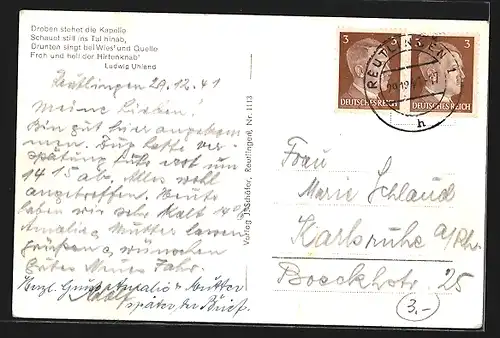 Droben stehet die Kapelle
Schauet still ins Tal hinab,
Drunten singt bei Wies' und Quelle
Froh und hell der Hirtenknab'
Ludwig Uhland
Reutlingen 29.12.41
Meine Lieben!
Bin gut hier angekom
men. Zug hatte Ver
spätung fuhr erst um
14 15 ab. Alles wohl
angetroffen. Heute
haben wir sehr Kalt 14°
Amalie u. Mutter lassen
grüßen u. wünschen
gutes Neues Jahr.
Herzl. Amalie u. Mutter
Adolf
später der Brief.
Verlag J. Schäfer, Reutlingen, Nr. 1113
3 3
DEUTSCHES REICH DEUTSCHES REICH
REUTLINGEN 1
h
Frau
Marie Schlaud
Karlsruhe a/Rh.
Boeckhstr. 25
3.-